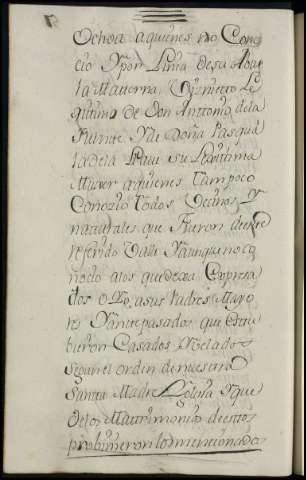 Ochoa aquienes no Cono
cio Ypor Linia desu Abue
la Materna, Viznietto Le
gitimo de Don Anttonio dela
Fuente Yde Doña Pasqua
ladela Lexitima
Muxer aquienes tampoco
Conozio todos Vecinos Y
naturales que Fueron deeste
referido Valle Yaunque no co
nocio alos que dexa Expresa
dos asus Padres Mayo
res Yantepasados que estu
bieron Casados Yvelados
Segun el orden de nuestra
Santa Madre Yglesia Yque
delos Mattrimonios de estos
probinieron los mencionados